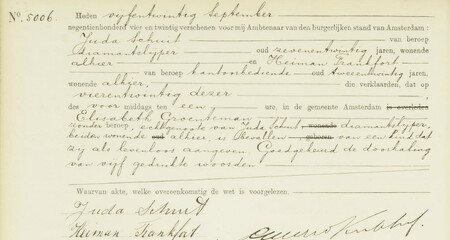 No. 5006.
Heden vijfentwintig September
negentienhonderd vier en twintig verschenen voor mij Ambtenaar van den burgerlijken stand van Amsterdam:
Juda Schrit van beroep
diamantslijper oud zevenentwintig jaren, wonende
alhier en Heiman Frankfort
van beroep kantoorbediende oud tweeentwintig jaren,
wonende alhier, die verklaarden, dat op
vierentwintig dezer
des voor middags ten een ure, in de gemeente Amsterdam is overleden
Elisabeth Groenteman
zonder beroep, echtgenoote van Juda Schrit, wonende diamantslijper,
beiden wonende oud alhier, is bevallen geboren van een kind dat
zij als levenloos aangeven Goedgekeurd de doorhaling
van vijf gedrukte woorden
Waarvan akte, welke overeenkomstig de wet is voorgelezen.
Juda Schrit
Heiman Frankfort